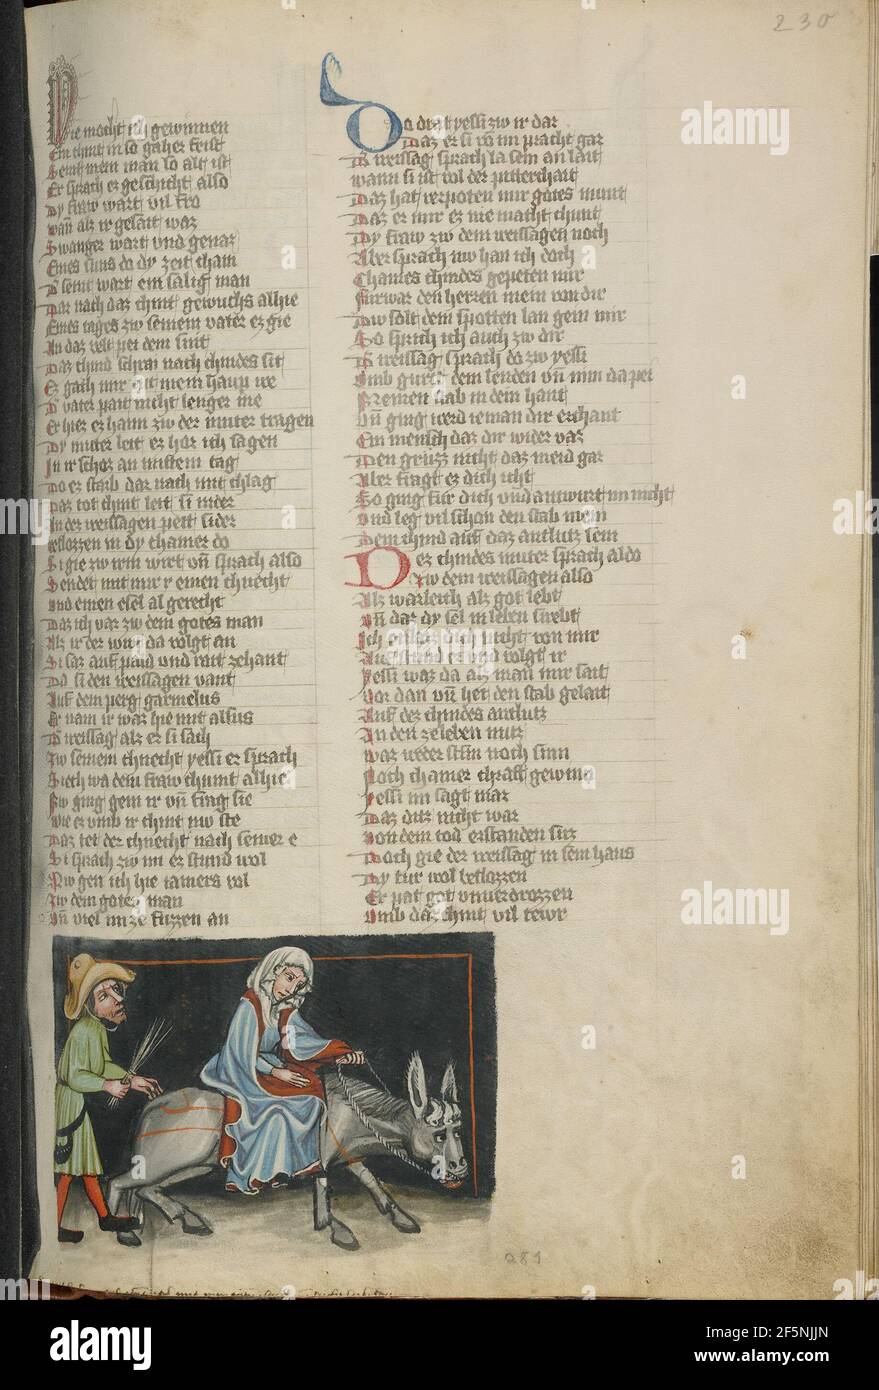 230
Wie mocht ich gewinnen
Ein chint in so gaher frist
Seint mein man so alt ist
Er sprach er geschicht also
Dy fraw wart vil fro
wan als ir gesait waz
Swanger wart vnd genaz
Eines suns do dy zeit cham
Dar nach daz chint gewuchs alhie
Eines tages zw seinem vater ez gie
An daz velt pei dem snit
Daz chind schrai nach chindes sit
Ez gach mir mein haup we
D vater pait nicht lenger me
Er hiez ez haim zw der muter tragen
Dy muter leit ez hor ich sagen
In ir schoz an mittem tag
Do ez starb dar nach mit chlag
Daz tot chint leit si nider
In der weissagen pett sider
in dy chamer do
Si gie zw irm wirt vn sprach also
Sendet mit mir einen chnecht
Vnd einen esel al gerecht
Daz ich var zw dem gotes man
Als ir der wint da volgt an
Si saz auf paid vnd rait zehant
Da si den weissagen vant
Auf dem perg garmelus
Er nam ir war hie mit alsus
D weissag als er si sach
Zw seinem chnecht yessi er sprach
Siech wa dem fraw chumt alhie
Nw ging gein ir vn frag sie
Wie ez vmb ir chint nw ste
Daz tet der chnecht nach seiner e
Si sprach zw im er stund wol
Nw gen ich hie iamers vol
Zw dem gotez man
Vn viel im ze fuzzen an
Do drat yessi zw ir dar
Daz er si von im pracht gar
D weissag sprach la sein an lait
wann si ist vol der pitterchait
Daz hat verpoten mir gotes munt
Daz er mir ez nie macht chunt
Dy fraw zw dem weissagen noch
Aber sprach nw han ich doch
Chaines chindes gepeten mir
Fürwar den herren mein von dir
Dw solt dem spotten lan gein mir
So sprich ich auch zw dir
D weissag sprach do zw yessi
Vmb gurt dem lenden vn min da pei
Meinen stab in dem hant
Vn ging werd ieman dir erchant
Ein mensch daz dir wider var
Den gruzz nicht daz meid gar
Aber fragt ez dich icht
So ging für dich vnd antwurt im nicht
Vnd leg vil schon den stab mein
Dem chind auf daz antlutz sein
Dez chindes muter sprach aldo
Zw dem weissagen also
Alz warleich alz got lebt
Vn daz dy sel in leben strebt
Ich dich nicht von mir
Auf stund er vnd volgt ir
Yessi waz da alz man mir sait
Vor dan vn het den stab gelait
Auf dez chindes antlutz
An den zeleben nutz
waz weder stim noch sinn
Noch chainer chraft gewinn
Yessi im sagt mar
Daz nicht war
Von dem tod erstanden
Doch gie der weissag in sein haus
Dy tür wol beslozzen
Er pat got vnuerdrozzen
Vmb daz chint vil tewr
281
a alamy
alamy
Image ID: 2F5NJJN
www.alamy.com